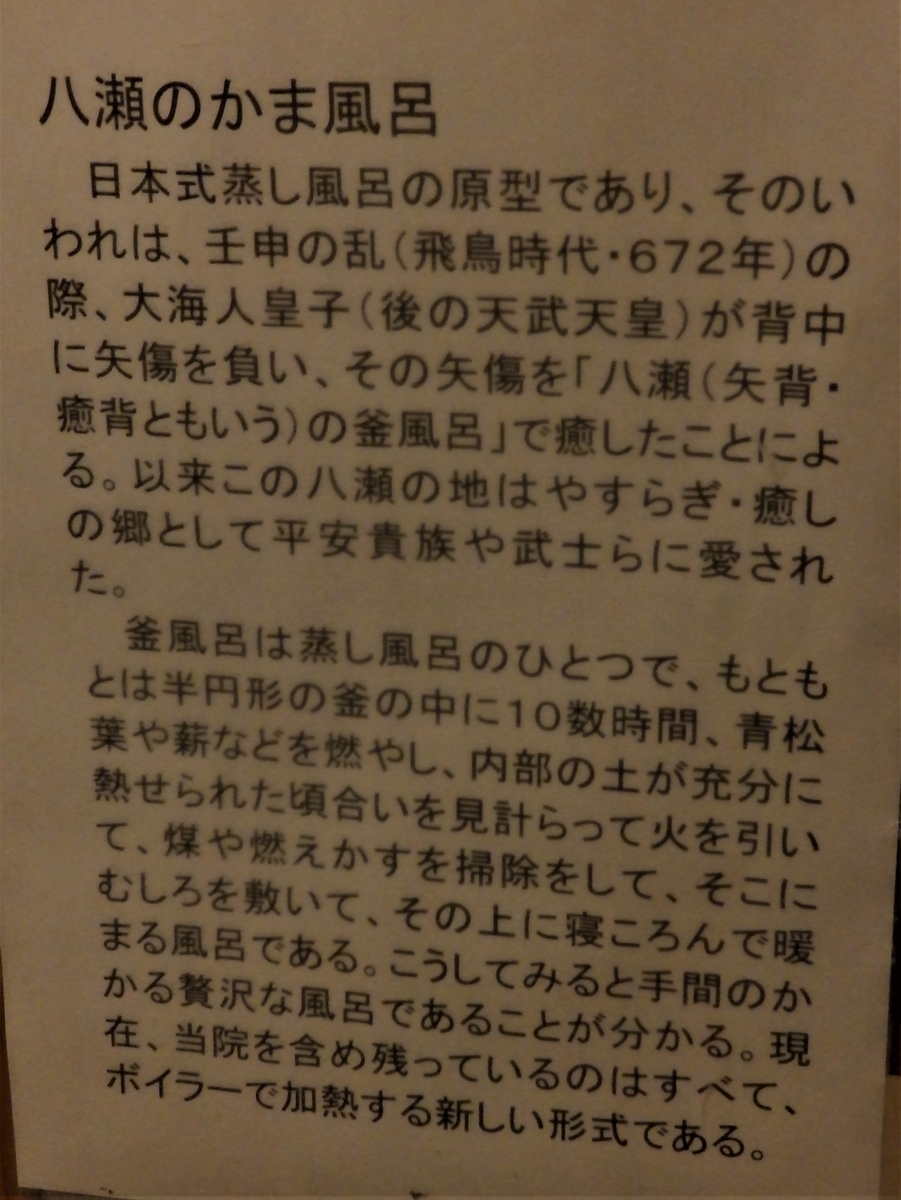 八瀬のかま風呂
日本式蒸し風呂の原型であり、そのい
われは、壬申の乱(飛鳥時代・672年)の
際、大海人皇子(後の天武天皇)が背中
に矢傷を負い、その矢傷を「八瀬(矢背・
癒背ともいう)の釜風呂」で癒したことによ
る。以来この八瀬の地はやすらぎ・癒し
の郷として平安貴族や武士らに愛され
た。
釜風呂は蒸し風呂のひとつで、もとも
とは半円形の釜の中に10数時間、青松
葉や薪などを燃やし、内部の土が充分に
熱せられた頃合いを見計らって火を引い
て、煤や燃えかすを掃除をして、そこに
むしろを敷いて、その上に寝ころんで暖
まる風呂である。こうしてみると手間のか
かる贅沢な風呂であることが分かる。現
在、当院を含め残っているのはすべて、
ボイラーで加熱する新しい形式である。